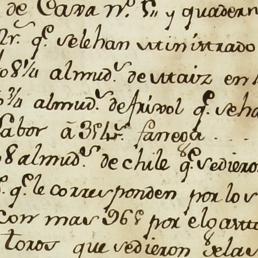 de Casa nº. 5,, y quadern
qº. selehan ministrado
8¼ almudˢ. de maiz en
¾ almudˢ. de frixol qº. seha
sabor à 3½rˢ. fanega
8 almudˢ. de chile qº. sedieron
qº. le corresponden por los
con mas 96 pˢ. por elgasto
toros que sedieron